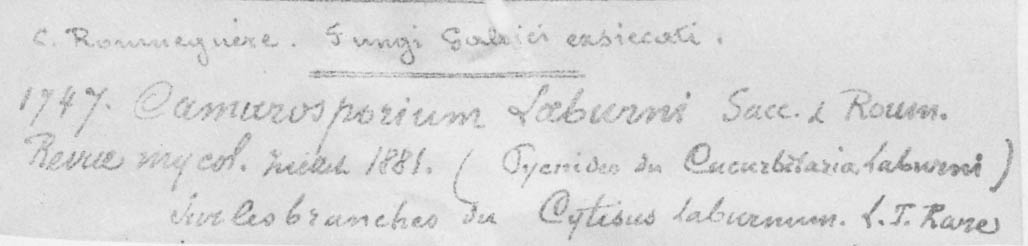 C. Roumeguère. Fungi Gallici exsiccati.
1747. Camarosporium Laburni Sacc. & Roum.
Revue mycol. 1881. (Pycnides du Cucurbitaria Laburni)
Sur les branches du Cytisus laburnum.